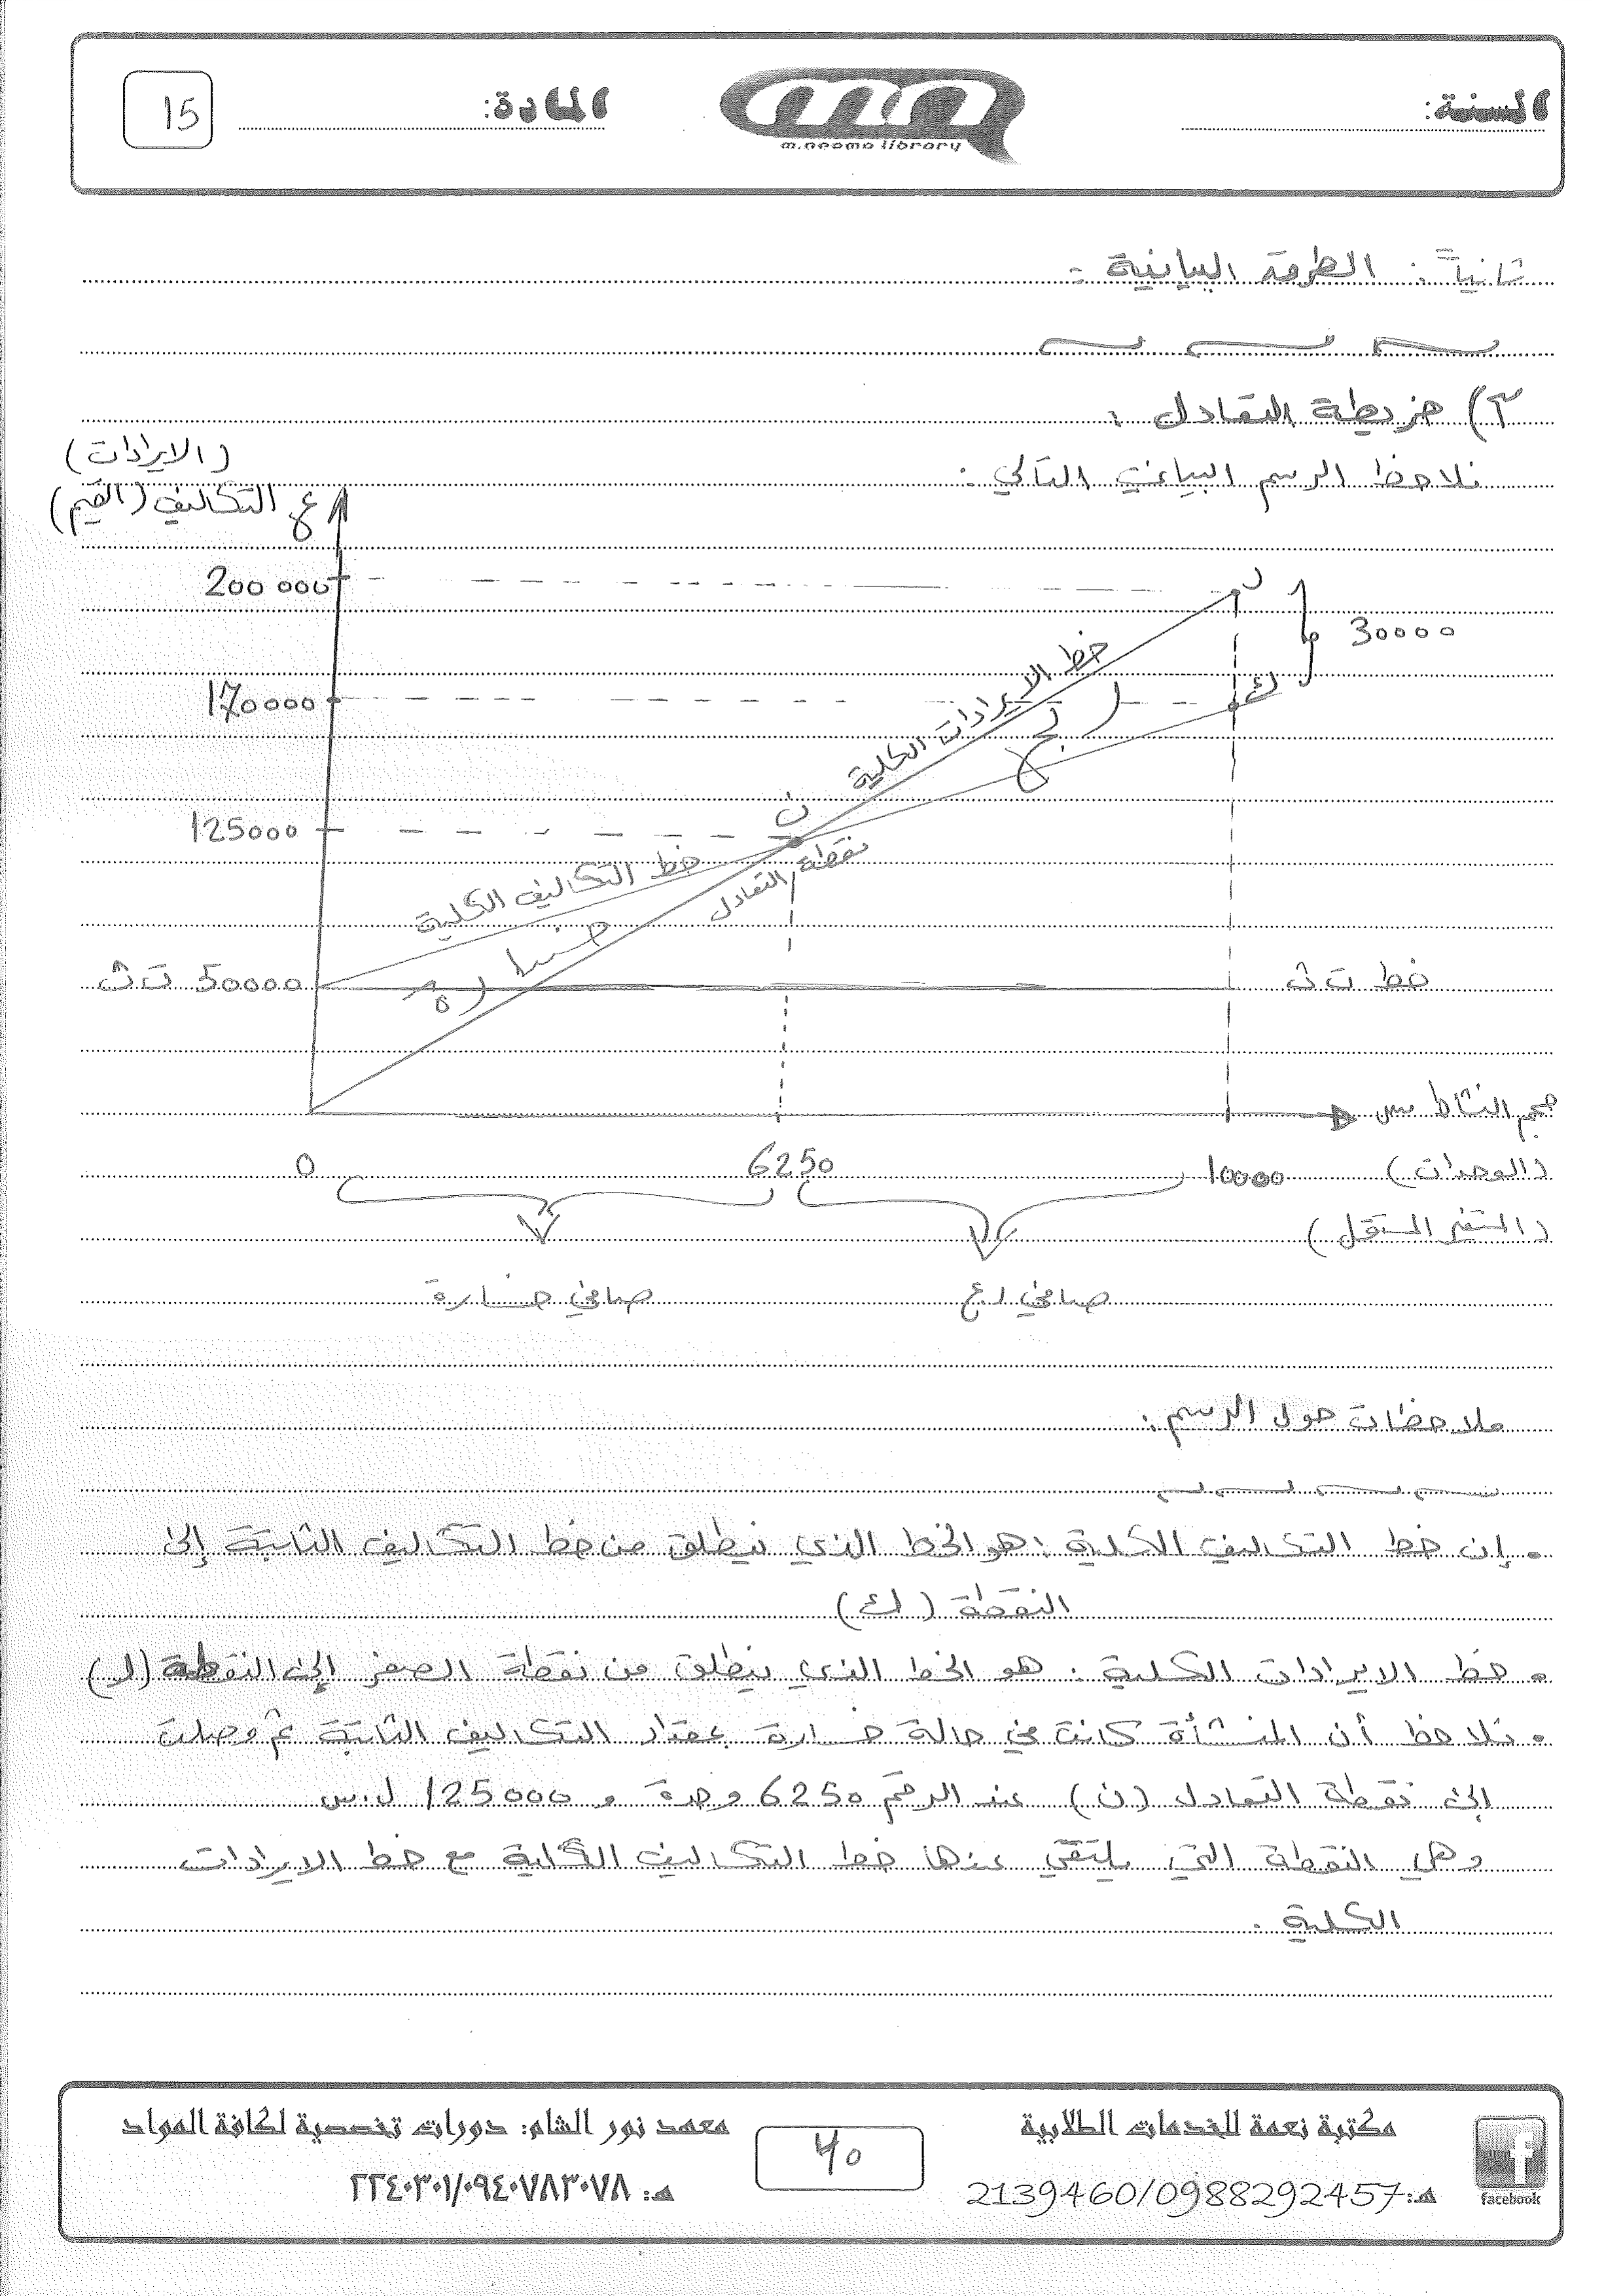 السنة:
m.neama library
المادة:
15
ثانياً: الطرقة البيانية :
آ) خريطة التعادل :
نلاحظ الرسم البياني التالي :
(الايرادات)
ع التكاليف (القيم)
200 000
170000
125000
50000 ت ث
ل
30000
ك
خط الايرادات الكلية
ربح
ن
نقطة التعادل
خط التكاليف الكلية
خسارة
خط ت ث
حجم النشاط س
(الوحدات)
(المتغير المستقل)
0
6250
10000
صافي خسارة
صافي ربح
ملاحظات حول الرسم :
• إن خط التكاليف الكلية : هو الخط الذي ينطلق من خط التكاليف الثابتة إلى
النقطة (ك)
• خط الايرادات الكلية : هو الخط الذي ينطلق من نقطة الصفر إلى النقطة (ل)
• نلاحظ أن المنشأة كانت في حالة خسارة بمقدار التكاليف الثابتة ثم وصلت
إلى نقطة التعادل (ن) عند الرقم 6250 وحدة و 125000 ل.س
وهي النقطة التي يلتقي عندها خط التكاليف الكلية مع خط الايرادات
الكلية .
facebook
مكتبة نعمة للخدمات الطلابية
هـ: 2139460/0988292457
معهد نور الشام: دورات تخصصية لكافة المواد
هـ: ٢٢٤٠٣٠١/٠٩٤٠٧٨٣٠٧٨